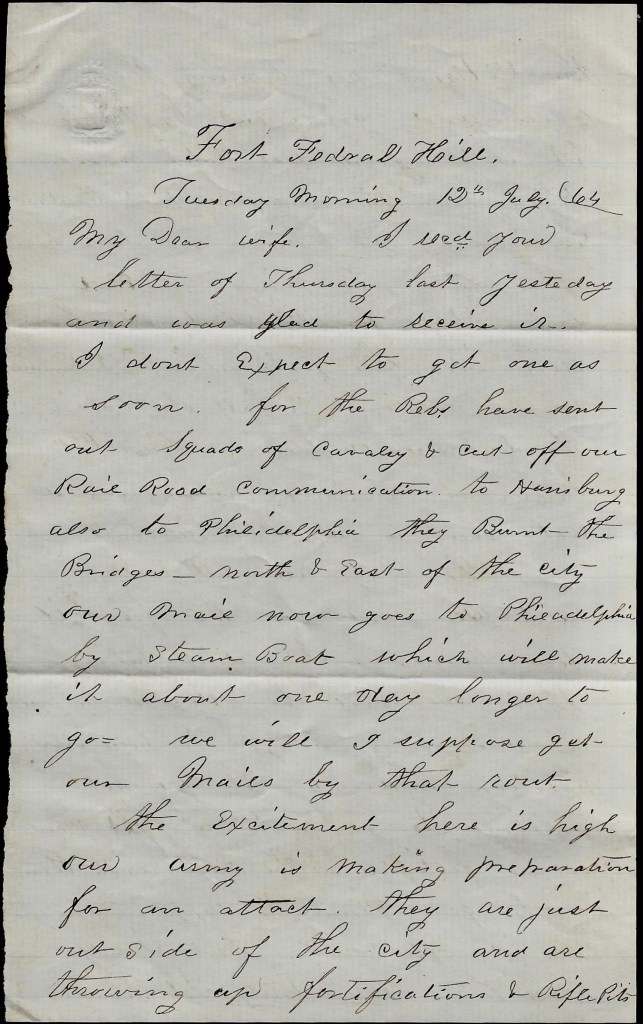 Fort Fedral Hill.
Tuesday Morning 12th July. (64
My Dear wife. I recd your
letter of Thursday last yesteday
and was glad to receive it.
I dont Expect to get one as
soon. for the Rebs have sent
out Squads of Cavalry & cut off our
Rail Road communication. to Harisburg
also to Philidelphia they Burnt the
Bridges - north & East of the city
our Mail now goes to Phileadelphia
by Steam Boat which will make
it about one day longer to
go= we will I suppose get
our Mails by that rout.
the Excitiment here is high
our army is making preparation
for an attact. they are just
out side of the city and are
throwing up fortifications & Rifle Pits